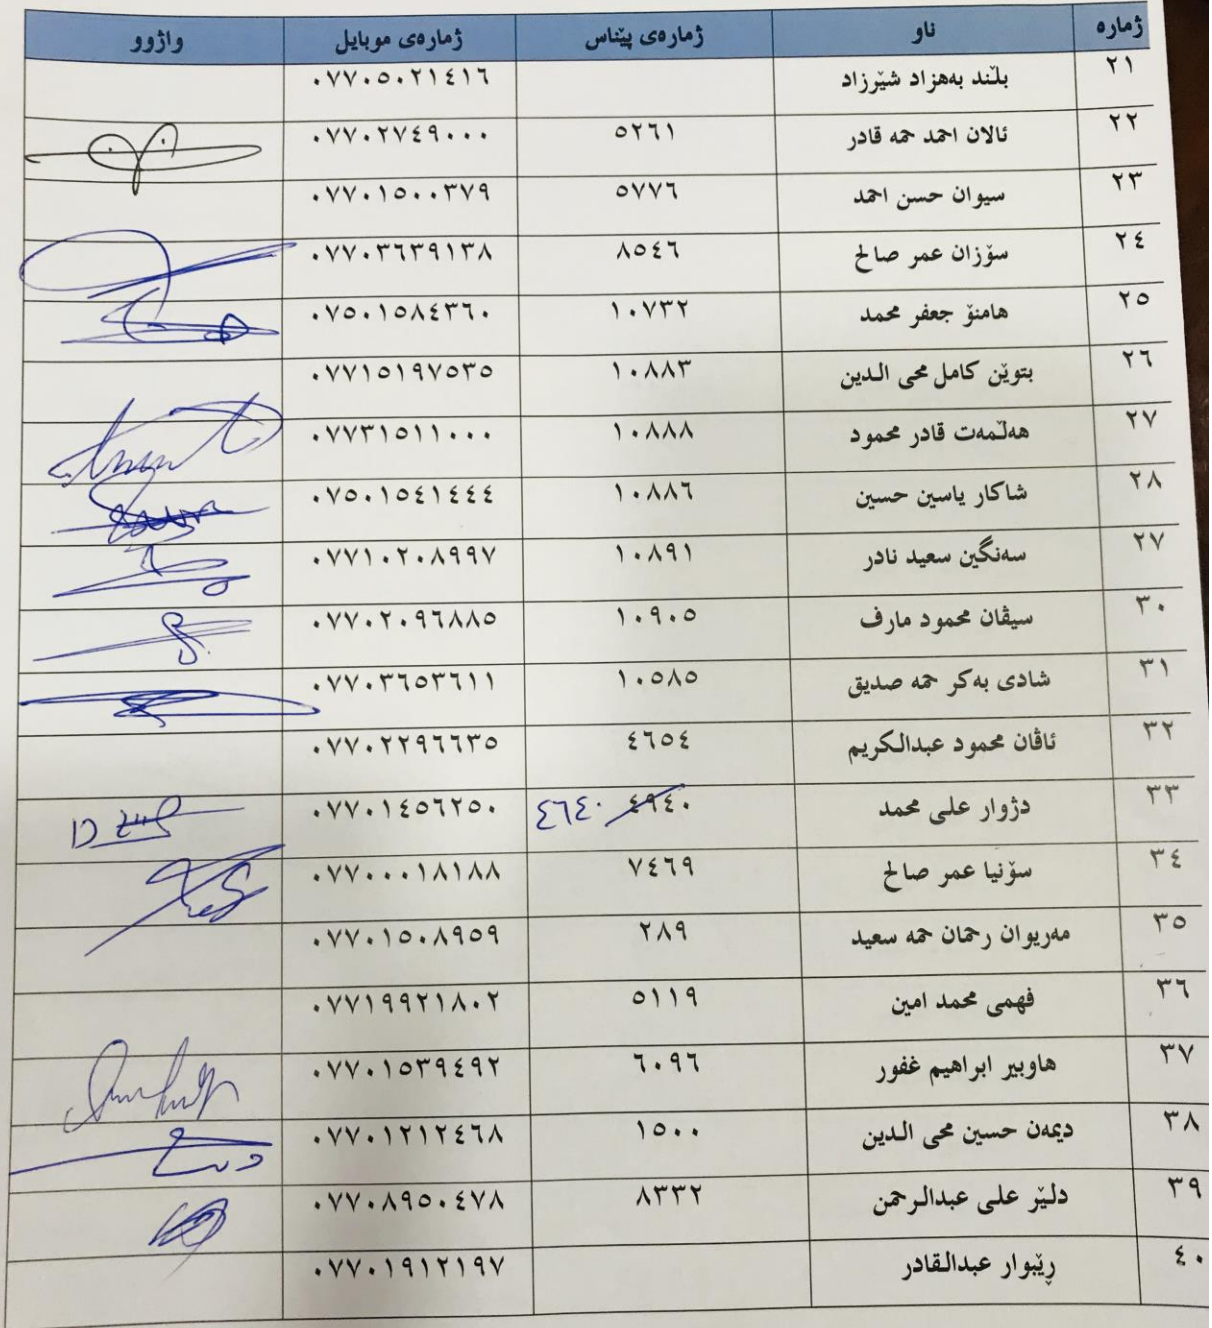 ژمارە ناو ژمارەی پێناس ژمارەی موبایل واژوو
٢١ بڵند بەهزاد شێرزاد ٠٧٧٠٥٠٢١٤١٦
٢٢ ئالان احمد حمە قادر ٥٢٦١ ٠٧٧٠٢٧٤٩٠٠٠
٢٣ سیوان حسن احمد ٥٧٧٦ ٠٧٧٠١٥٠٠٣٧٩
٢٤ سۆزان عمر صالح ٨٥٤٦ ٠٧٧٠٣٦٣٩١٣٨
٢٥ هامنۆ جعفر محمد ١٠٧٣٢ ٠٧٥٠١٥٨٤٣٦٠
٢٦ بتوێن کامل محی الدین ١٠٨٨٣ ٠٧٧١٥١٩٧٥٣٥
٢٧ هەڵمەت قادر محمود ١٠٨٨٨ ٠٧٧٣١٥١١٠٠٠
٢٨ شاکار یاسین حسین ١٠٨٨٦ ٠٧٥٠١٥٤١٤٤٤
٢٧ سەنگین سعید نادر ١٠٨٩١ ٠٧٧١٠٢٠٨٩٩٧
٣٠ سیڤان محمود مارف ١٠٩٠٥ ٠٧٧٠٢٠٩٦٨٨٥
٣١ شادی بەکر حمە صدیق ١٠٥٨٥ ٠٧٧٠٣٦٥٣٦١١
٣٢ ئاڤان محمود عبدالکریم ٤٦٥٤ ٠٧٧٠٢٢٩٦٦٣٥
٣٣ دژوار علی محمد ٤٩٤٠ ٤٦٤٠ ٠٧٧٠١٤٥٦٢٥٠
٣٤ سۆنیا عمر صالح ٧٤٦٩ ٠٧٧٠٠٠١٨١٨٨
٣٥ مەریوان رحمان حمە سعید ٢٨٩ ٠٧٧٠١٥٠٨٩٥٩
٣٦ فهمی محمد امین ٥١١٩ ٠٧٧١٩٩٢١٨٠٢
٣٧ هاوبیر ابراهیم غفور ٦٠٩٦ ٠٧٧٠١٥٣٩٤٩٢
٣٨ دیمەن حسین محی الدین ١٥٠٠ ٠٧٧٠١٢١٢٤٦٨
٣٩ دلێر علی عبدالرحمن ٨٣٣٢ ٠٧٧٠٨٩٥٠٤٧٨
٤٠ ڕێبوار عبدالقادر ٠٧٧٠١٩١٢١٩٧